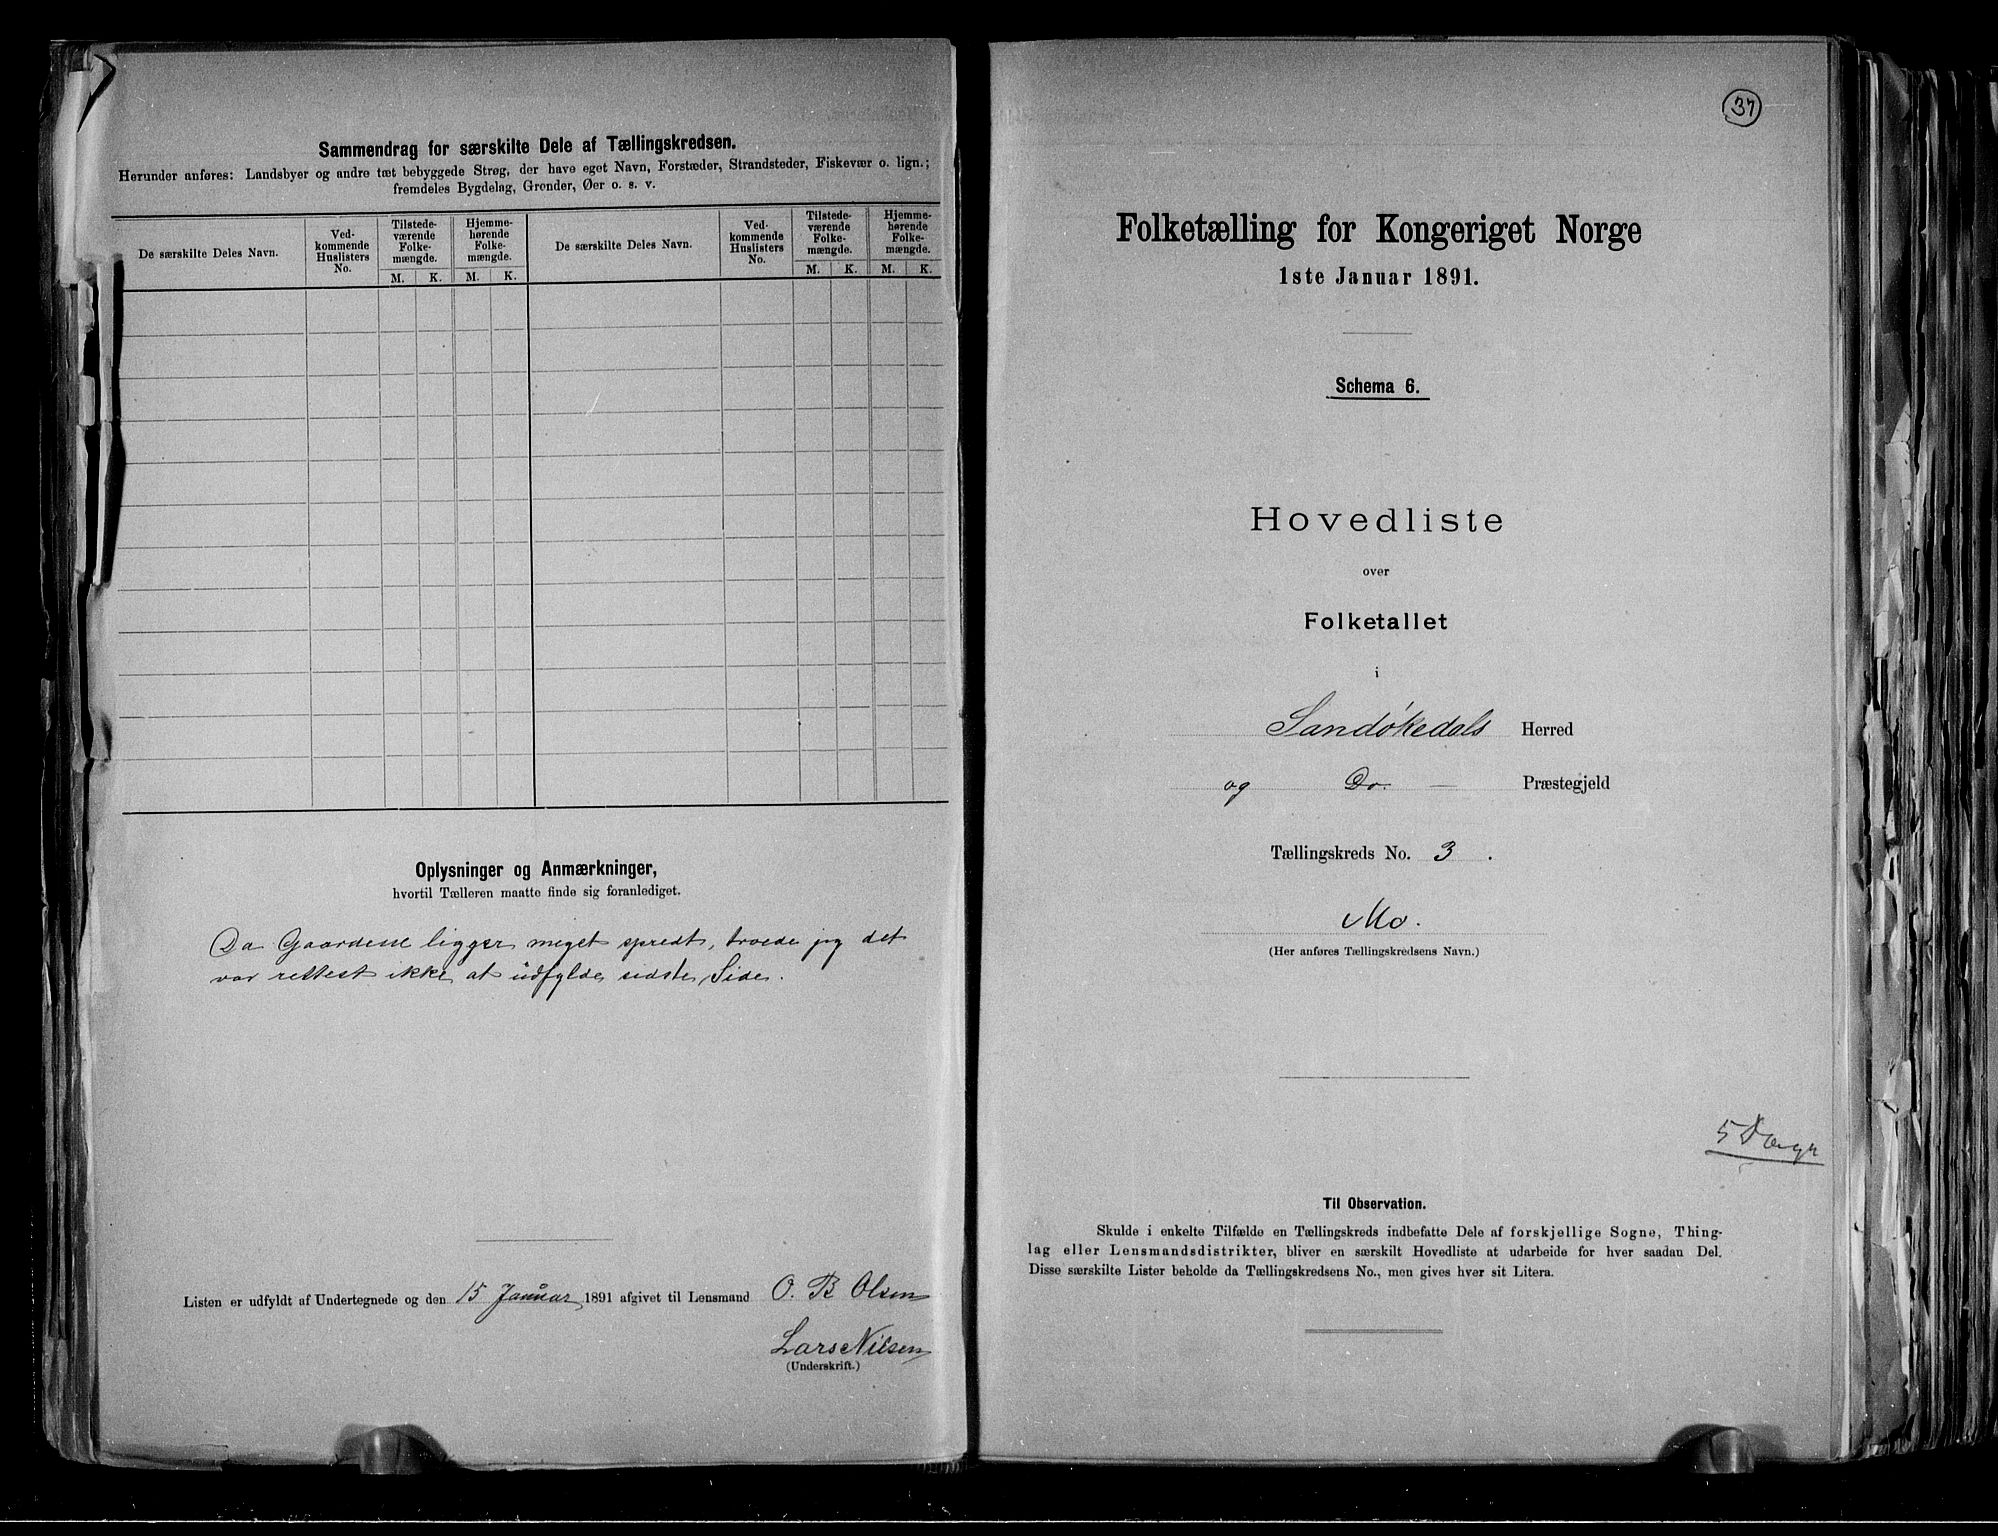 Sammendrag for særskilte Dele af Tællingskredsen.
Herunder anføres: Landsbyer og andre tæt bebyggede Strøg, der have eget Navn, Forstæder, Strandsteder, Fiskevær o. lign.;
fremdeles Bygdelag, Grender, Øer o. s. v.
De særskilte Deles Navn.
Ved-
kommende
Huslisters
No.
Tilstede-
værende
Folke-
mængde.
M. K.
Hjemme-
hørende
Folke-
mængde.
M. K.
De særskilte Deles Navn.
Ved-
kommende
Huslisters
No.
Tilstede-
værende
Folke-
mængde.
M. K.
Hjemme-
hørende
Folke-
mængde.
M. K.
Oplysninger og Anmærkninger,
hvortil Tælleren maatte finde sig foranlediget.
Da Gaardene ligger meget spredt, troede jeg det
var rettest ikke at udfylde sidste Side.
Listen er udfyldt af Undertegnede og den 15 Januar 1891 afgivet til Lensmand O. B. Olsen
Lars Nilsen
(Underskrift.)
37
Folketælling for Kongeriget Norge
1ste Januar 1891.
Schema 6.
Hovedliste
over
Folketallet
i
Sandøkedals Herred
og Do. — Præstegjeld
Tællingskreds No. 3.
Mo.
(Her anføres Tællingskredsens Navn.)
Til Observation.
Skulde i enkelte Tilfælde en Tællingskreds indbefatte Dele af forskjellige Sogne, Thing-
lag eller Lensmandsdistrikter, bliver en særskilt Hovedliste at udarbeide for hver saadan Del.
Disse særskilte Lister beholde da Tællingskredsens No., men gives hver sit Litera.